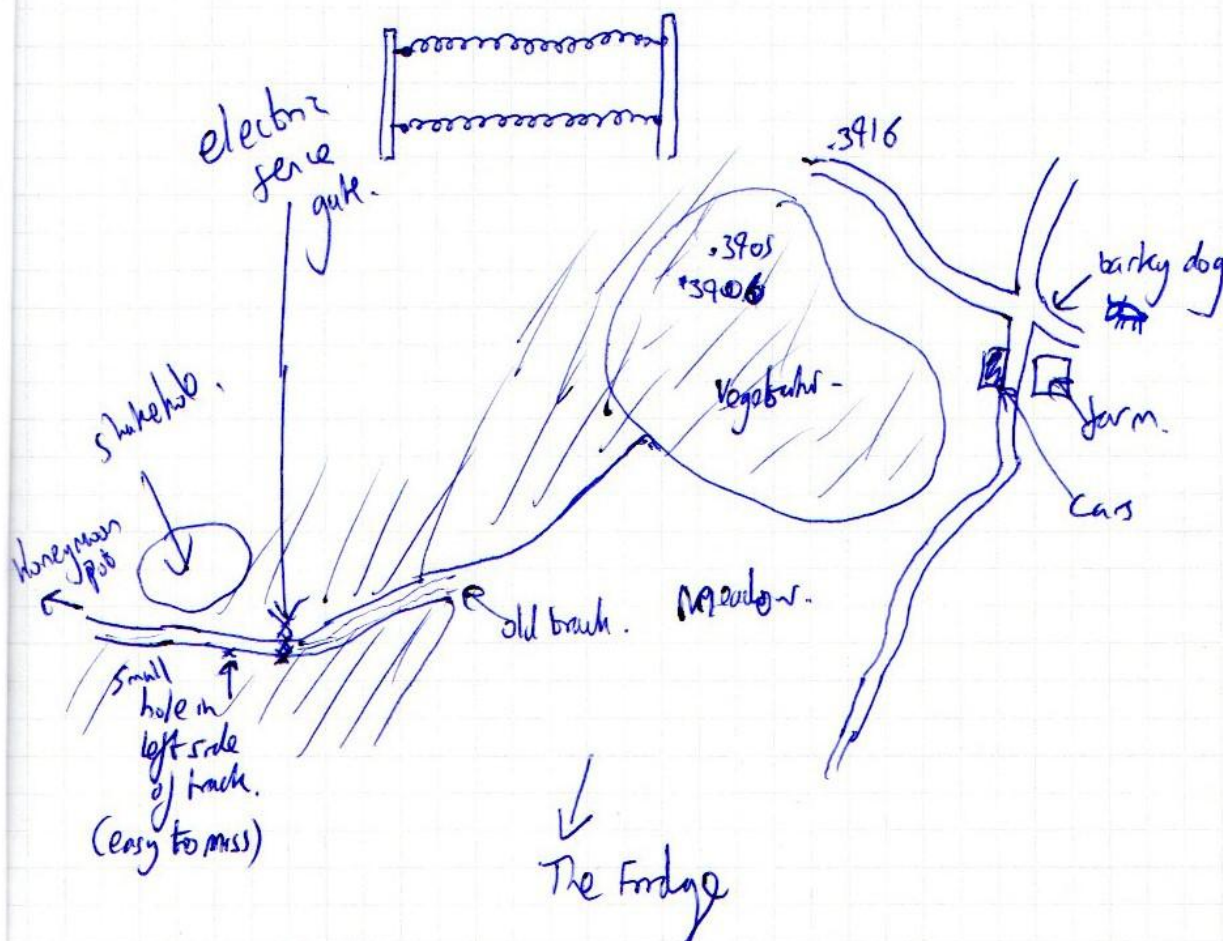 electric
fence
gate.
.3916
.3905
.3906
barky dog
shakehole.
Vegetation
farm.
Cars
Honeymoon
pot
old track.
Meadow.
small
hole in
left side
of track.
(easy to miss)
The Fridge